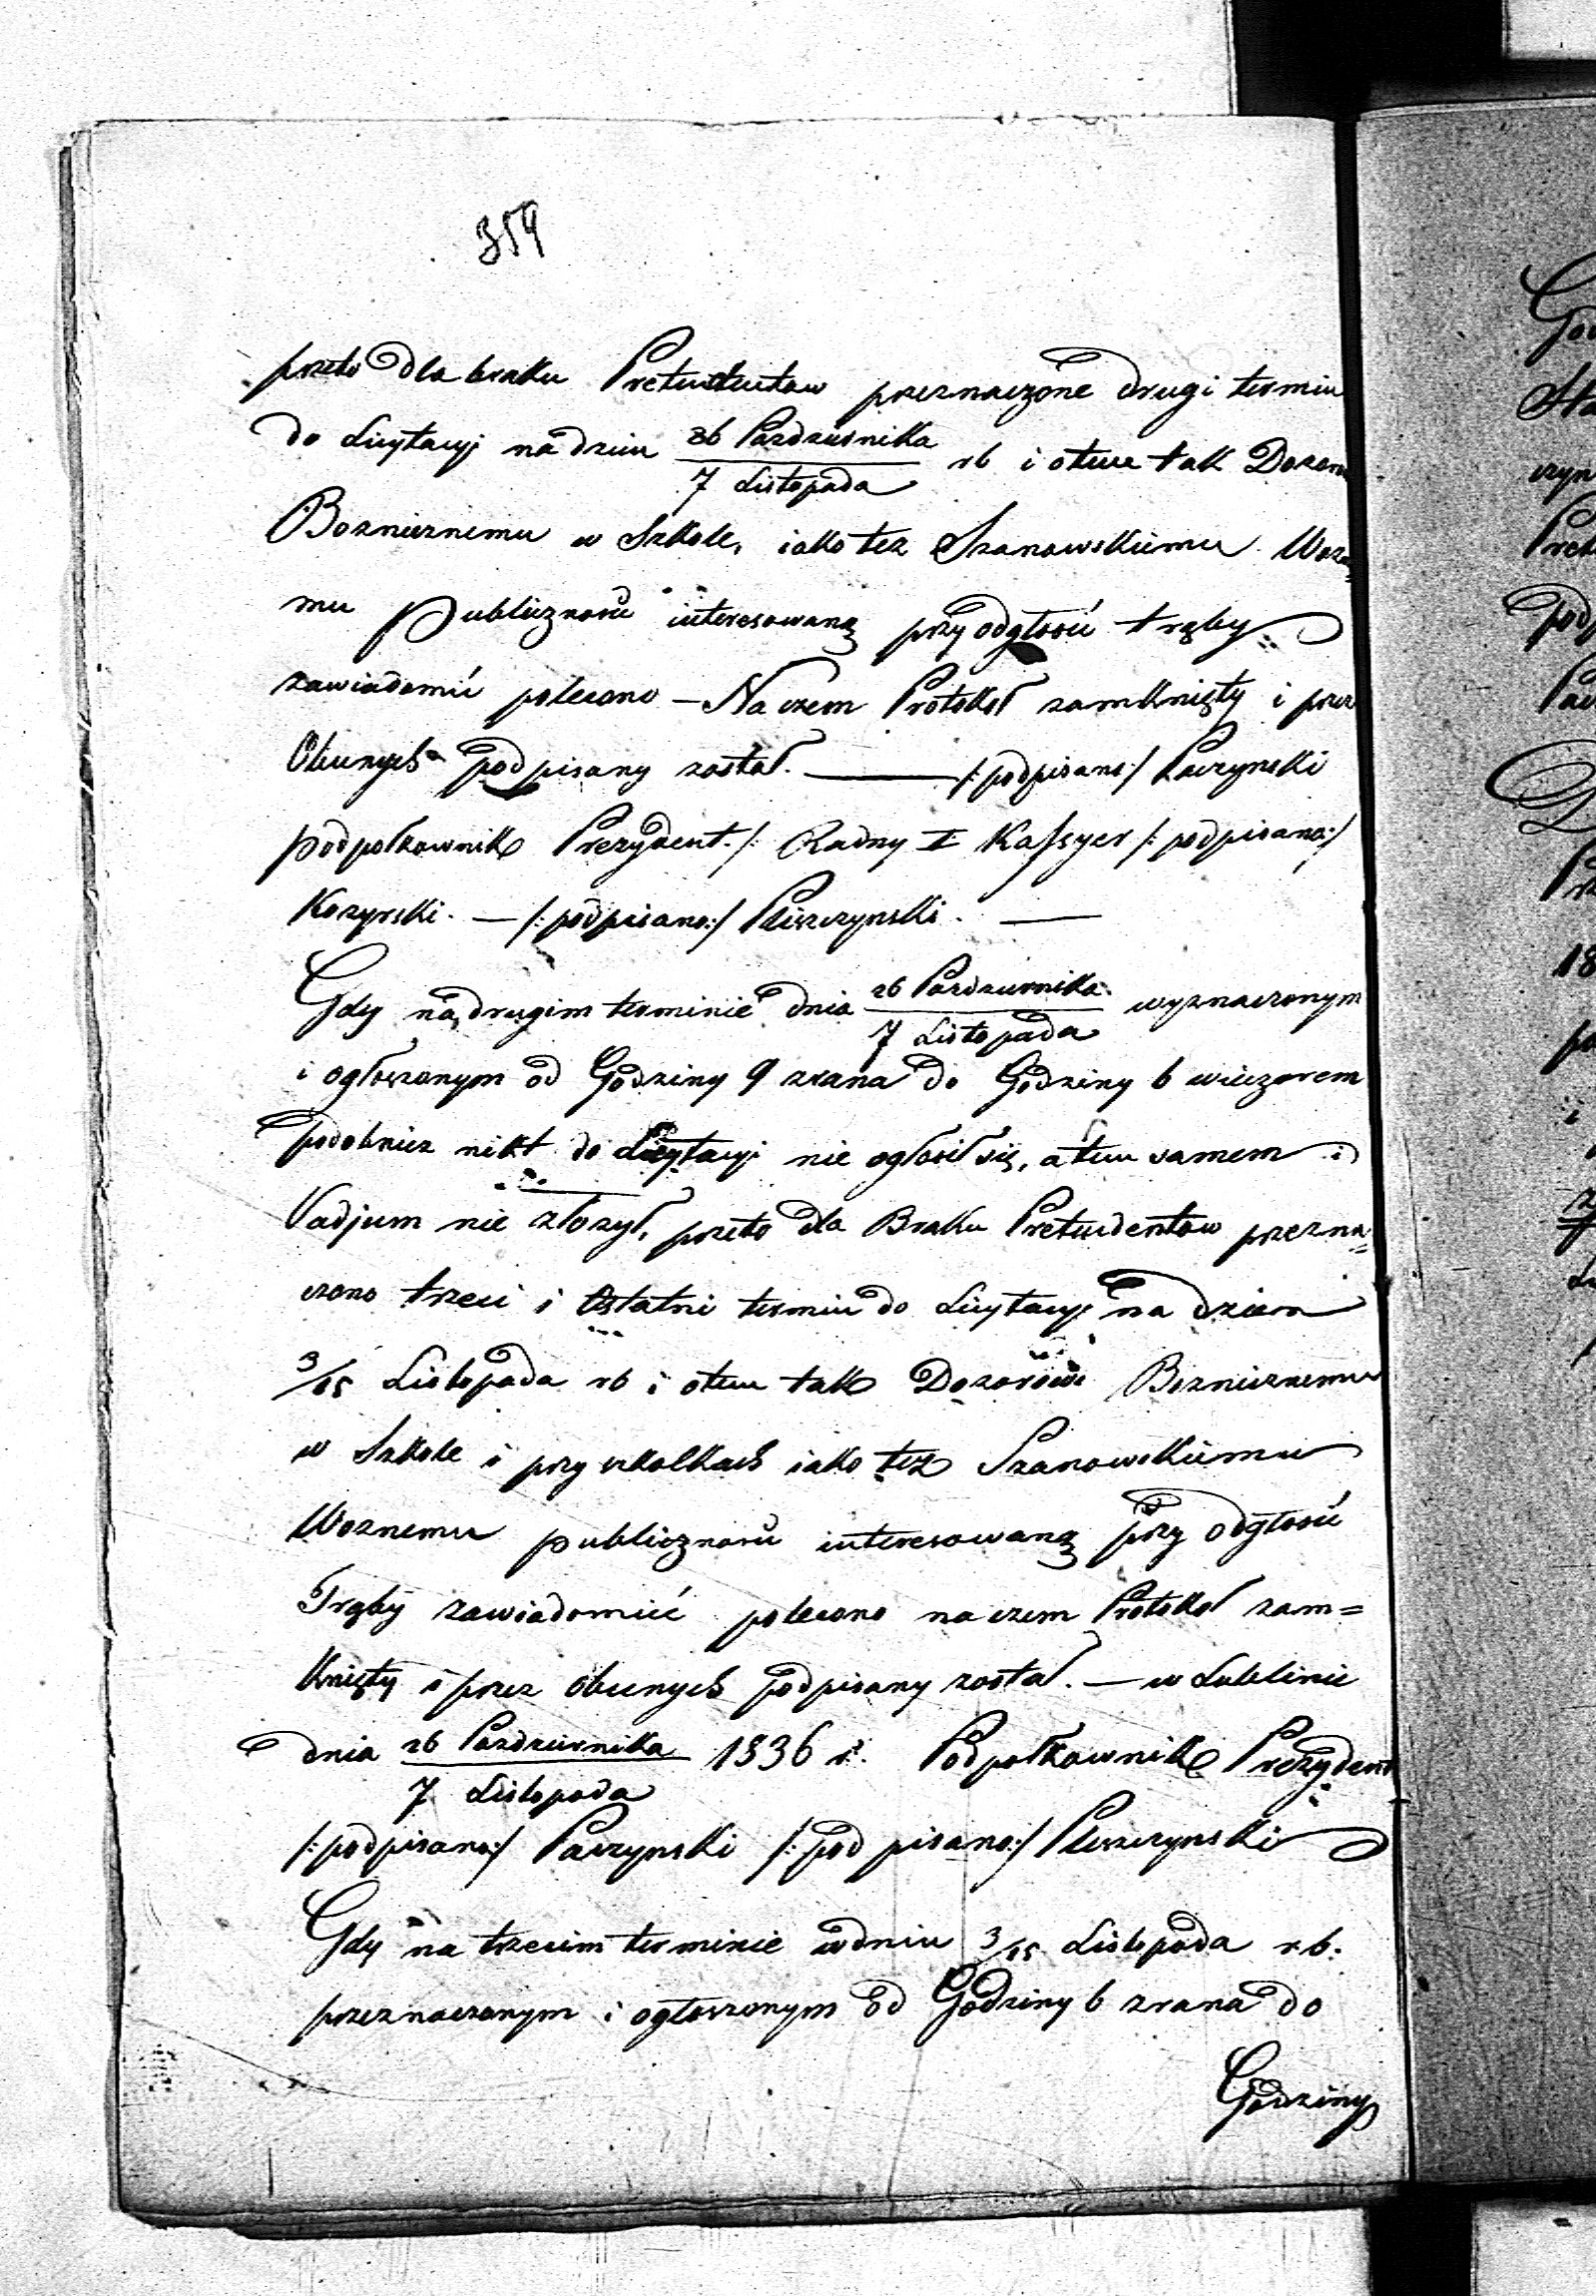 359
przeto dla braku Pretendentow przeznaczone drugi termin
do Licytacyi na dzien 26 Pazdziernika / 7 Listopada rb i otem tak Dozoro
Boznicznemu w Szkole, iako tez Szanowskiemu Wozne=
mu Publicznosc interesowaną przy odgłosie trąby
zawiadomić polecono — Na czem Protokoł zamknięty i przez
Obecnych podpisany został. — /: podpisano :/ Paczynski
Podpołkownik Prezydent. /: Radny I Kassyer /: podpisano :/
Kozyrski. — /: podpisano :/ Pleszczynski. —
Gdy na drugim terminie dnia 26 Pazdziernika / 7 Listopada wyznaczonym
i ogłoszonym od Godziny 9 zrana do Godziny 6 wieczorem
podobniez nikt do Licytacyi nie ogłosił się, a tem samem i
Vadjum nie złozył, przeto dla Braku Pretendentow przezna=
czono trzeci i Ostatni termin do Licytacyi na dzien
3/15 Listopada rb i otem tak Dozorowi Boznicznemu
w Szkole i przy szkolkach iako tez Szanowskiemu
Woznemu publicznosc interesowaną przy odgłosie
Trąby zawiadomić polecono na czem Protokoł zam=
knięty i przez obecnych podpisany został. — w Lublinie
dnia 26 Pazdziernika / 7 Listopada 1836 r. Podpołkownik Prezydent
/: podpisano :/ Paczynski /: podpisano :/ Pleszczynski
Gdy na trzecim terminie w dniu 3/15 Listopada rb.
przeznaczonym i ogłoszonym od Godziny 6 zrana do
Godziny